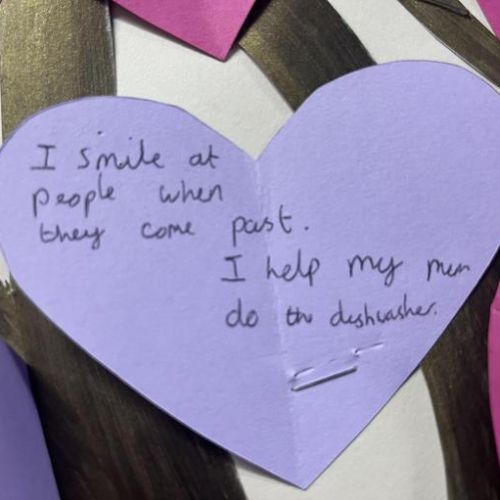 I smile at
people when
they come past.
I help my mum
do the dishwasher.